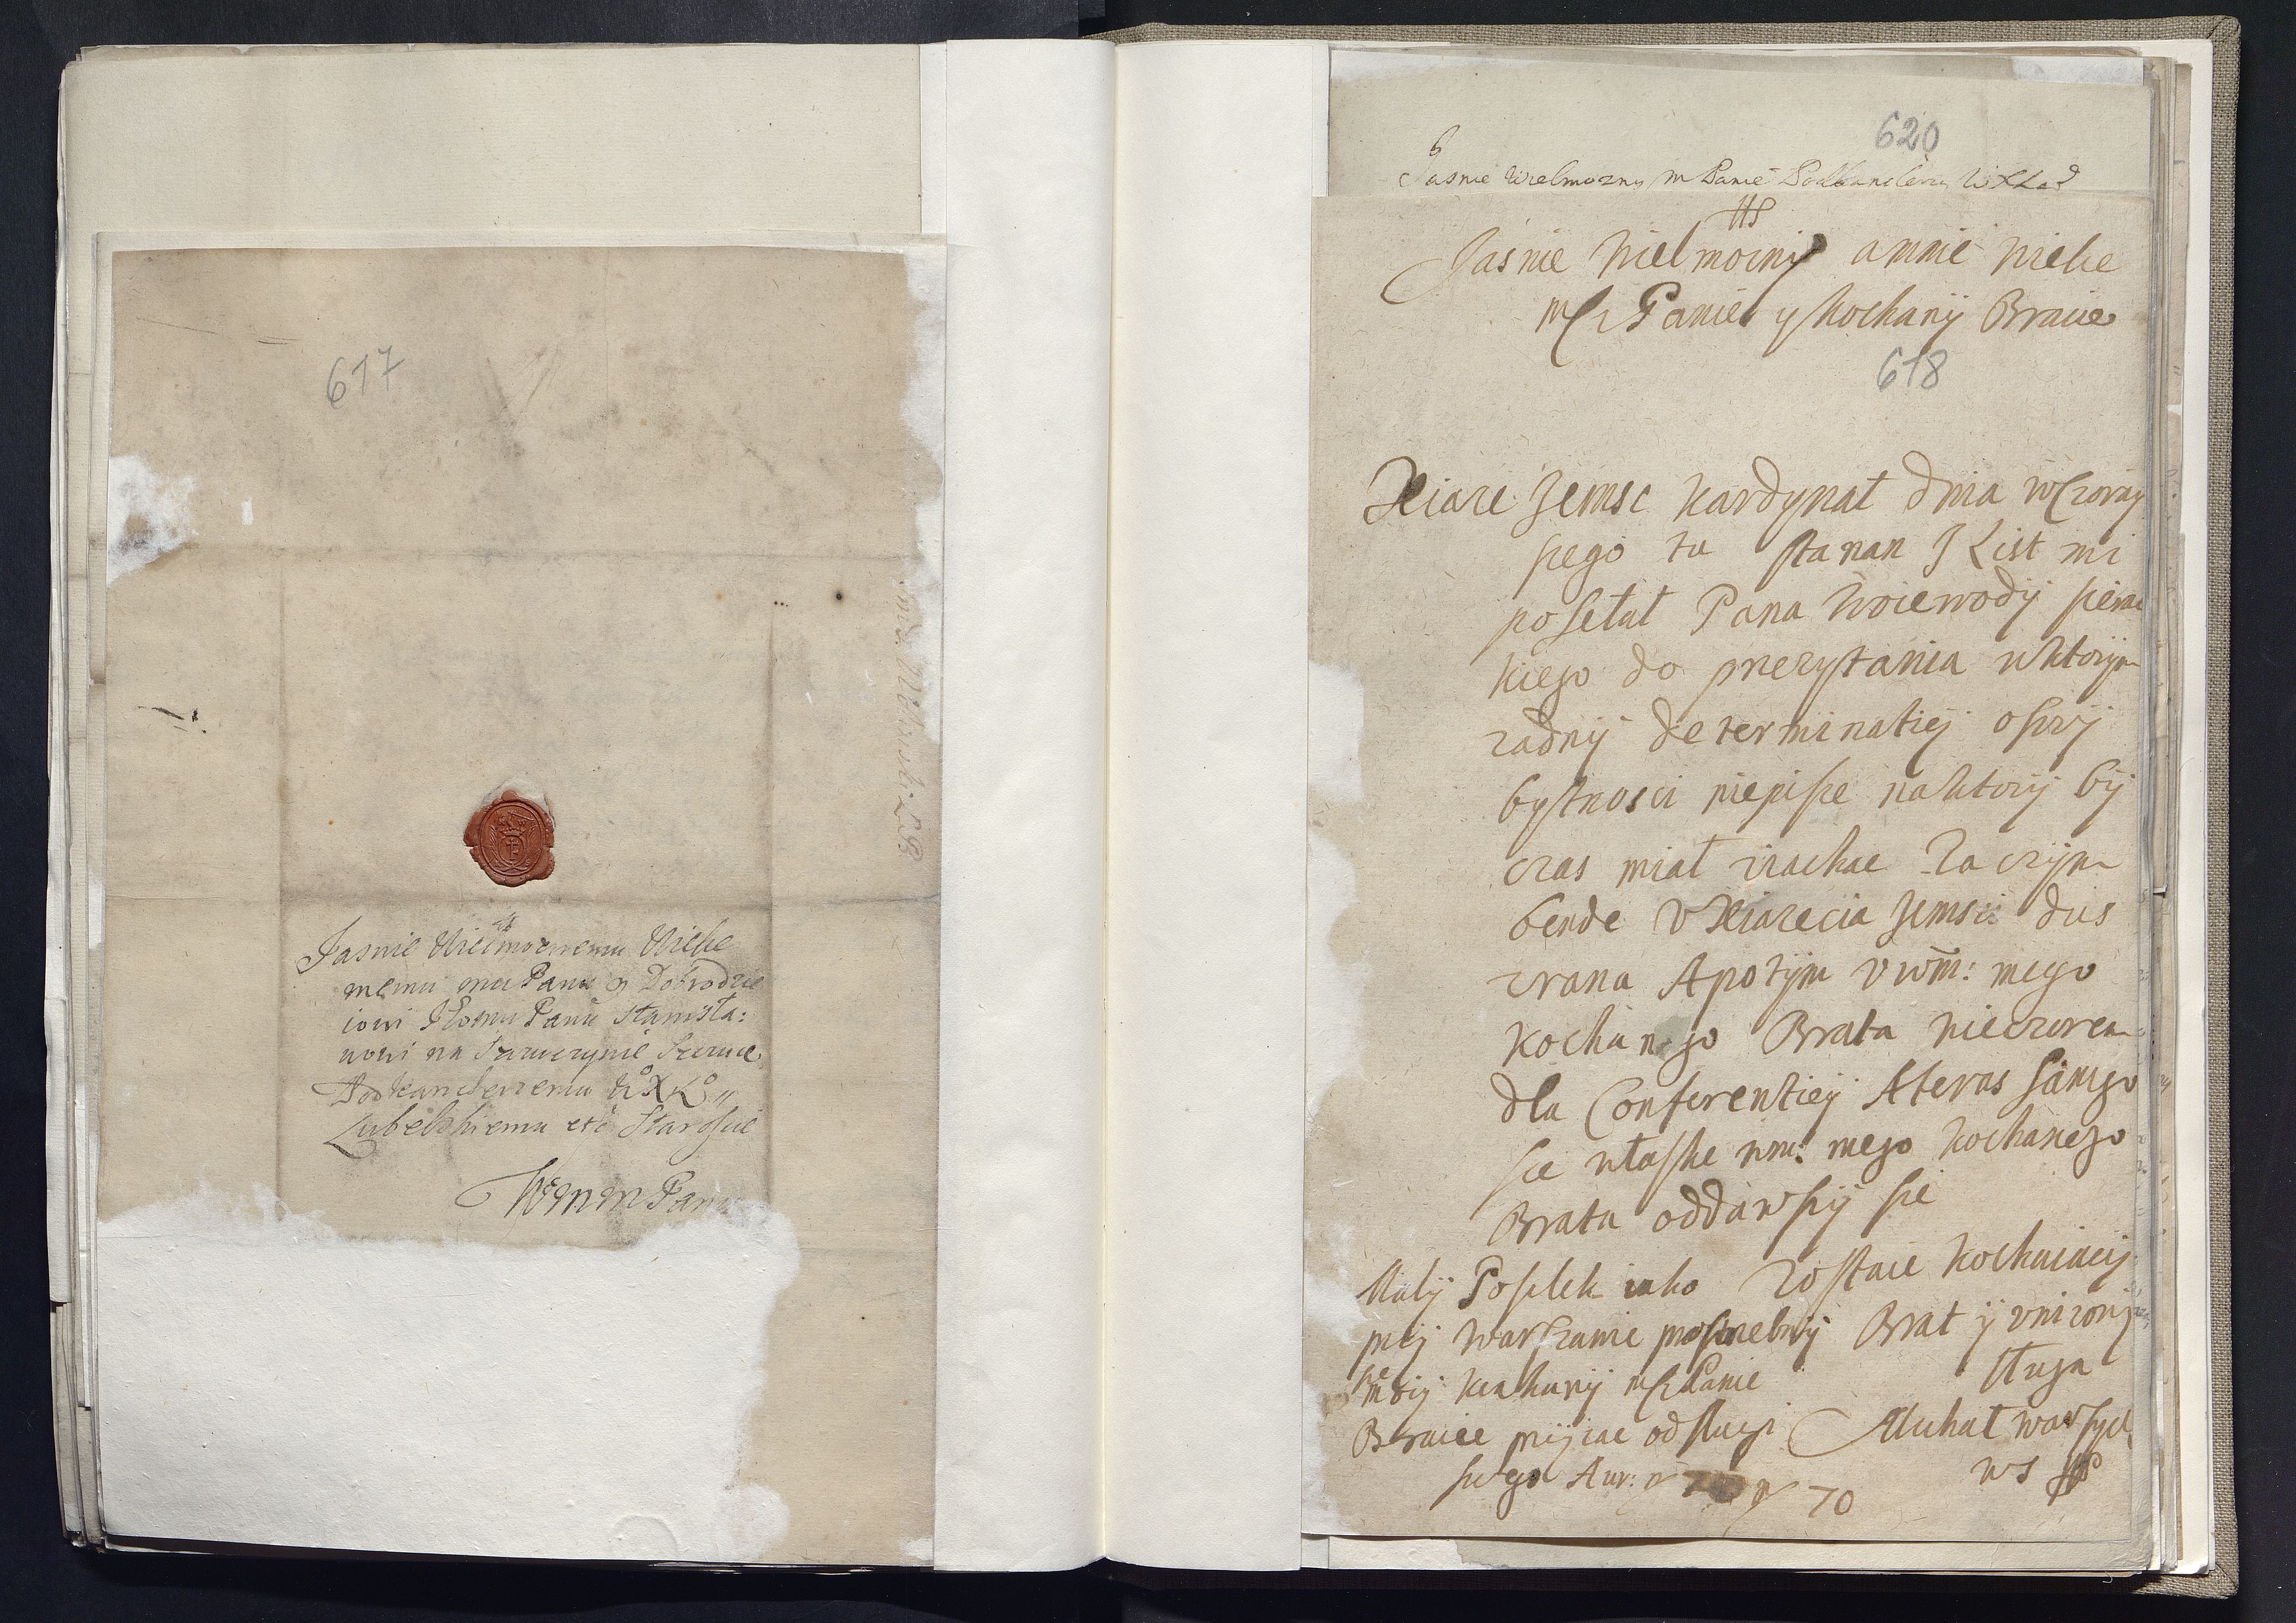 617
Jasnie Wielmoznemu Wielce
memu mu Panu y Dobrodzie
iowi Panu Stanisła:
wowi na Szczuce
Podkanclerzemu WXL
Lubelskiemu etc Staroscie
WMM Panu
620
Jasnie Wielmozny M Panie Podkanclerzy WXLo
Jasnie Wielmozny amnie Wielce
Mci Panie y kochany Bracie
618
Xiaze Jemsc kardynał dnia wczoray
szego tu stanan J List mi
posełał Pana Woiewody siera
kiego do przezytania wktorym
zadny determinatiey oswy
bytnosci niepisze naktory by
czas miał ziachac Za czym
bende v Xiazecia Jemsci dis
zrana Apotym v wm: mego
kochanego Brata wieczorem
dla Conferentiey Ateras samego
sie właske wm: mego kochanego
Brata oddawszy sie
Mały Posełek iako zostaie kochaiacy
mey Warszawie Brat y vnizony
moy kochany mci Panie sługa
Bracie przyiac od sługi Michał Warszyck
swego Aur: 70 WS